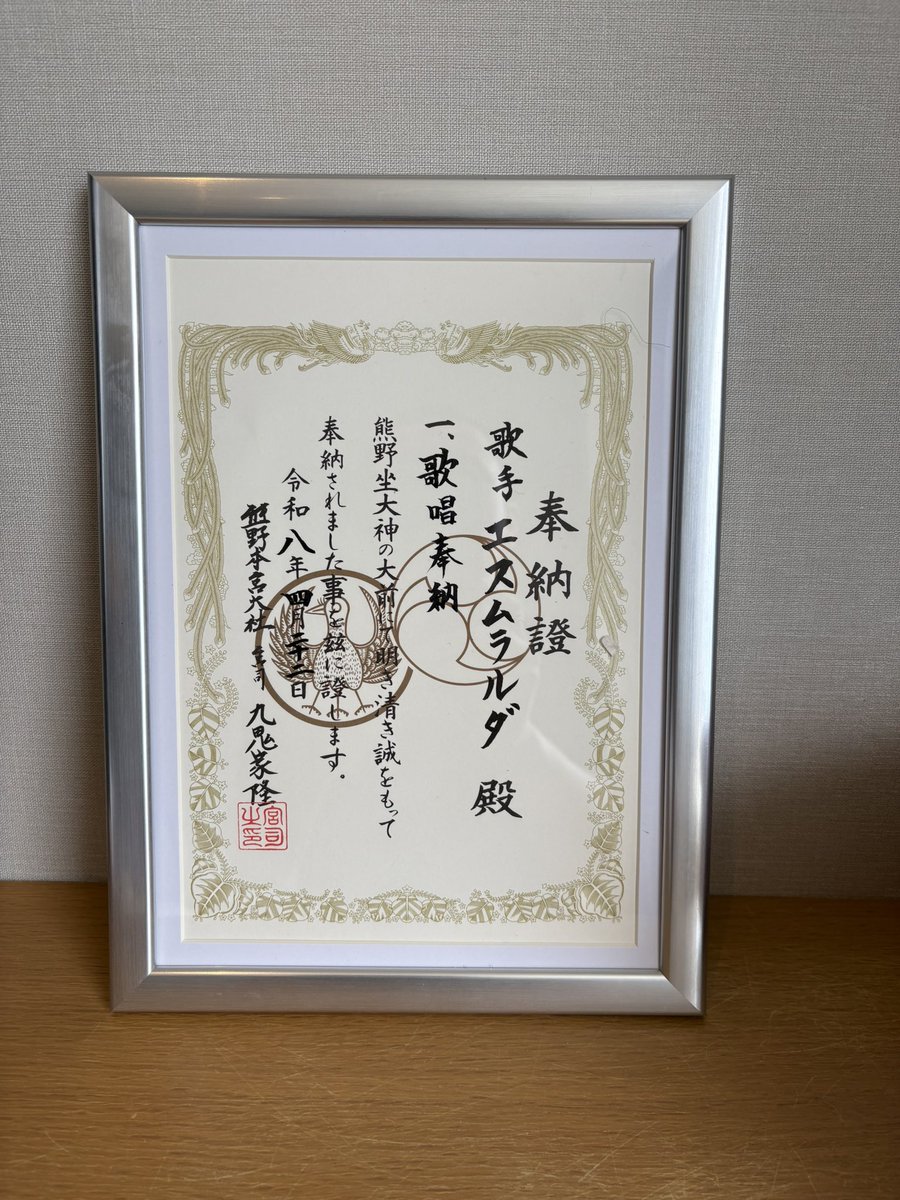 奉納證
歌手 エスムラルダ 殿
一、歌唱奉納
熊野坐大神の大前にて明き清き誠をもって
奉納されました事を茲に證します。
令和八年四月二十二日
熊野本宮大社 宮司 九鬼家隆
宮司
之印